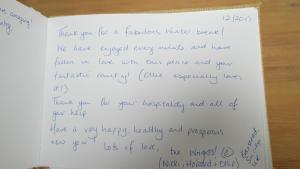 amazing!
12/2017
Thank you for a fabulous winter break!
We have enjoyed every minute and have
fallen in love with this place and your
fantastic country! (Ollie especially loves
it!)
Thank you for your hospitality and all of
your help
Have a very happy, healthy and prosperous
new year!
Lots of love, the
(Nicki, Howard + Ollie)
UK